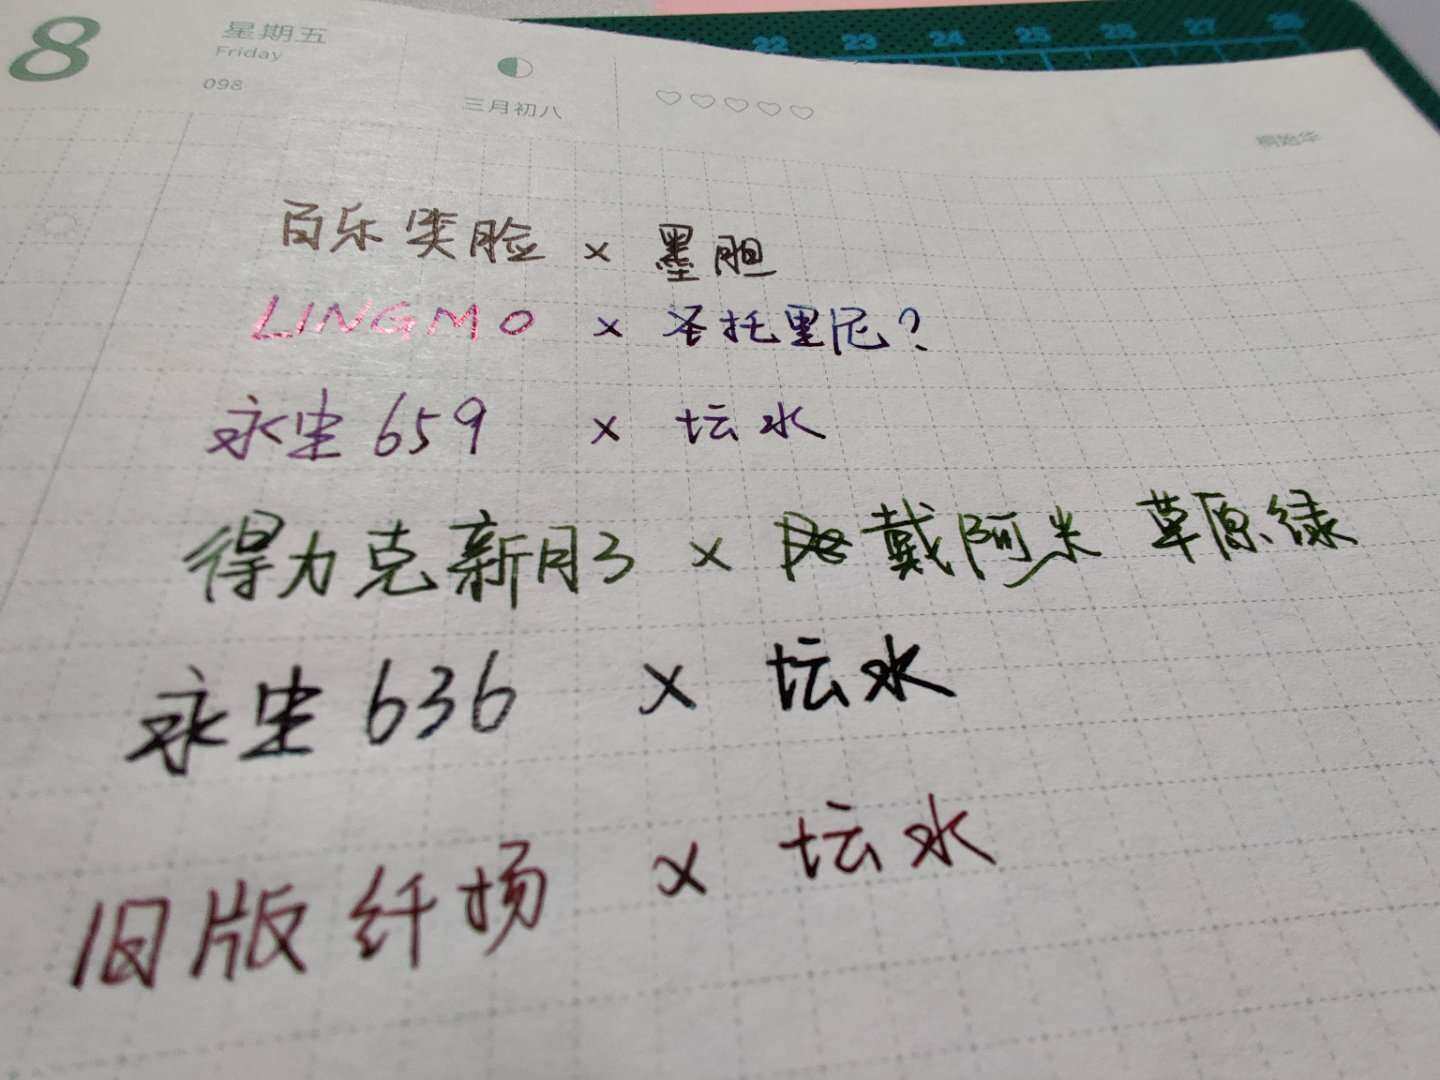 22 23 24 25 26 27 28
8 星期五
Friday
098
三月初八
桐始华
百乐笑脸 × 墨胆
LINGMO × 圣托里尼?
永生659 × 坛水
得力克新月3 × 戴阿米 草原绿
永生636 × 坛水
旧版纤扬 × 坛水